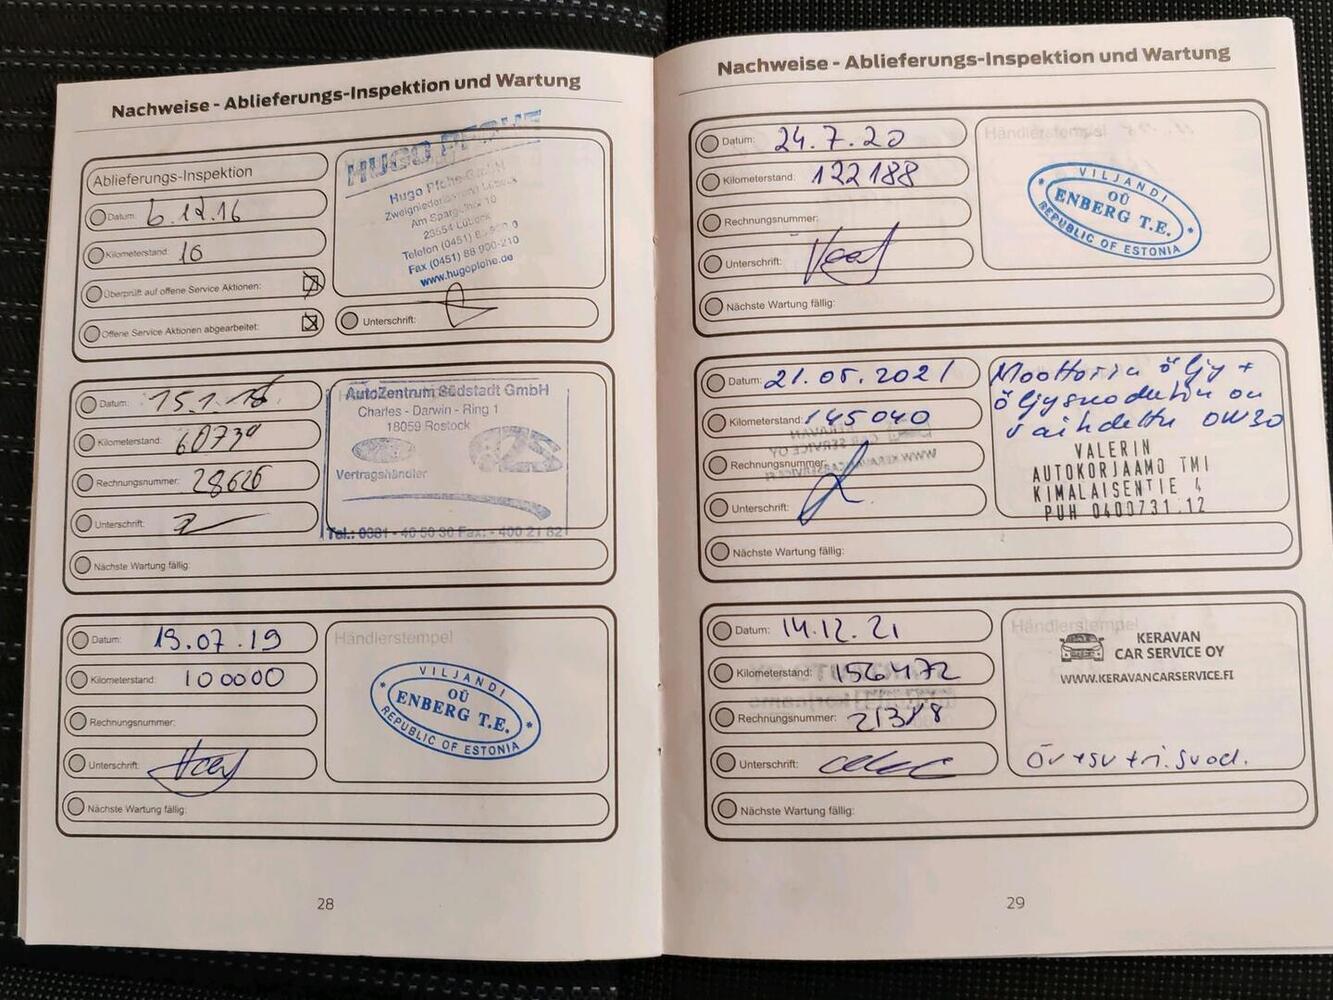 Nachweise - Ablieferungs-Inspektion und Wartung
Ablieferungs-Inspektion
Datum: 6.12.16
Kilometerstand: 10
Überprüft auf offene Service Aktionen:
Offene Service Aktionen abgearbeitet:
HUGO PFOHE
Hugo Pfohe GmbH
Zweigniederlassung Lübeck
Am Spargelhof 10
23554 Lübeck
Telefon (0451)
Fax (0451) 88 900-210
www.hugopfohe.de
Unterschrift:
Datum: 15.1.18
Kilometerstand: 60730
Rechnungsnummer: 28626
Unterschrift:
Nächste Wartung fällig:
AutoZentrum Südstadt GmbH
Charles - Darwin - Ring 1
18059 Rostock
Vertragshändler
Tel.: 0381 - 40 50 30 Fax: - 400 21 82
Datum: 19.07.19
Kilometerstand: 100000
Rechnungsnummer:
Unterschrift:
Nächste Wartung fällig:
Händlerstempel
VILJANDI
OÜ
ENBERG T.E.
REPUBLIC OF ESTONIA
28
Nachweise - Ablieferungs-Inspektion und Wartung
Datum: 24.7.20
Kilometerstand: 122188
Rechnungsnummer:
Unterschrift:
Nächste Wartung fällig:
Händlerstempel
VILJANDI
OÜ
ENBERG T.E.
REPUBLIC OF ESTONIA
Datum: 21.05.2021
Kilometerstand: 145040
Rechnungsnummer:
Unterschrift:
Nächste Wartung fällig:
Moottorin öljy +
öljysuodatin on
vaihdettu 0W30
VALERIN
AUTOKORJAAMO TMI
KIMALAISENTIE 4
PUH 0400731.12
Datum: 14.12.21
Kilometerstand: 156472
Rechnungsnummer: 21318
Unterschrift:
Nächste Wartung fällig:
Händlerstempel
KERAVAN
CAR SERVICE OY
WWW.KERAVANCARSERVICE.FI
29